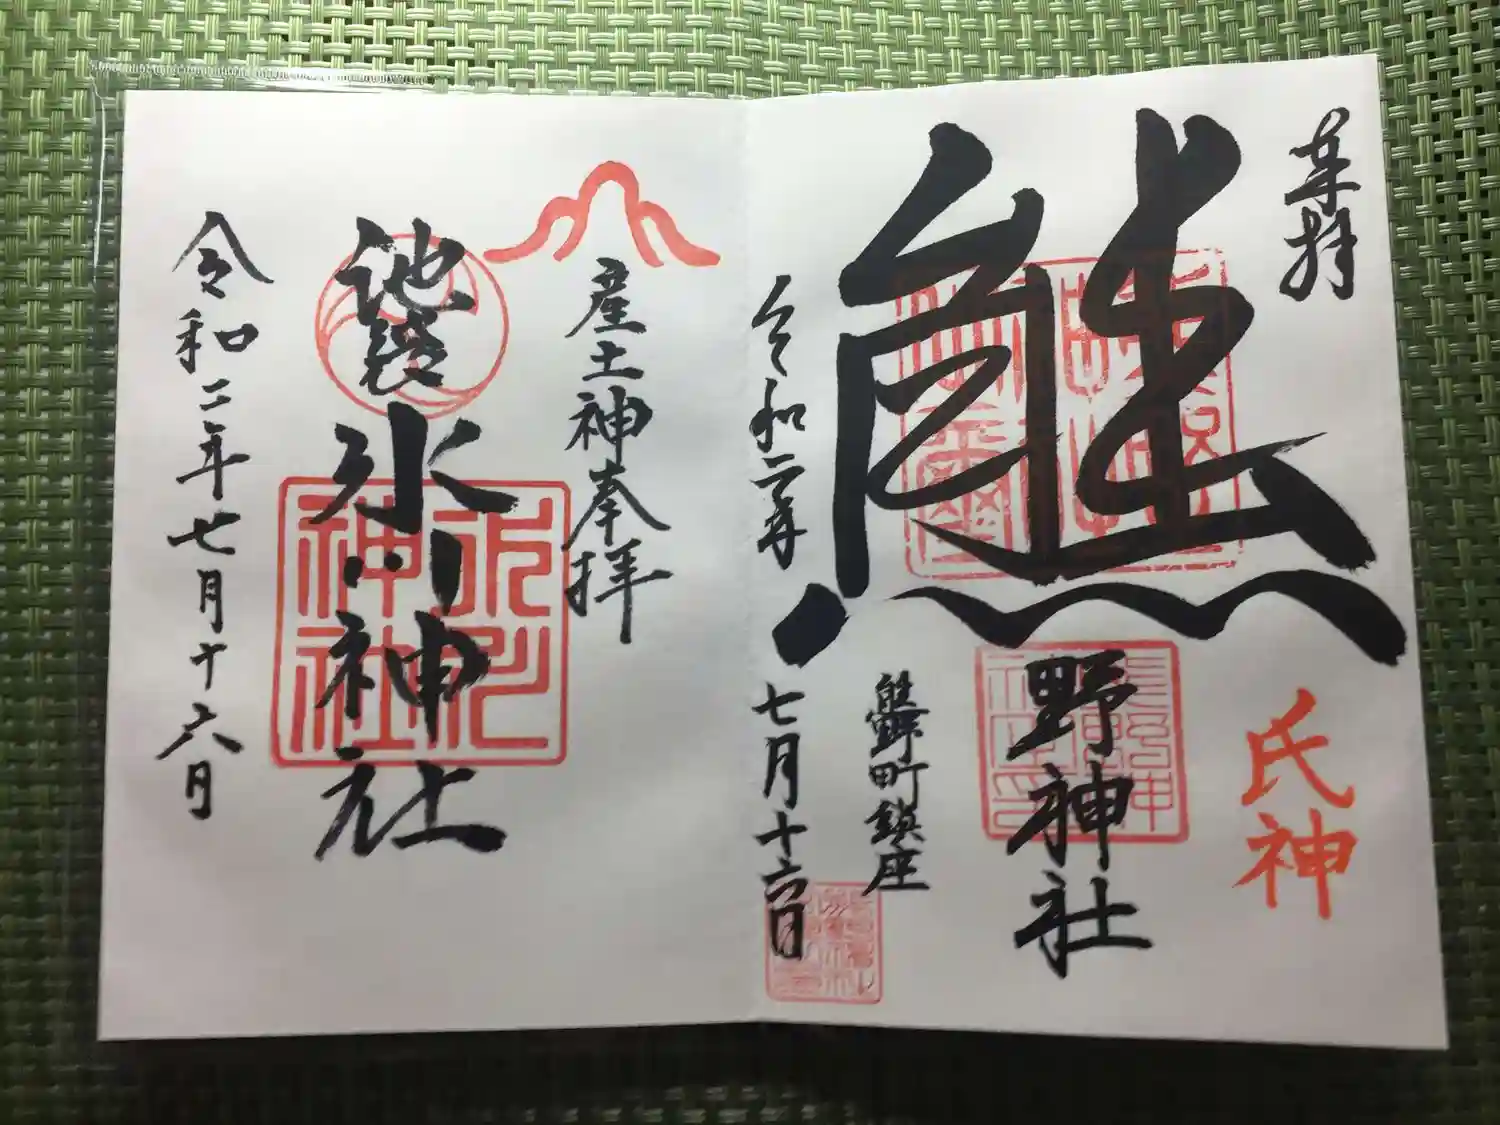 奉拝
熊野神社
氏神
熊野町鎮座
令和二年七月十六日
産土神奉拝
池袋氷川神社
氷川神社
令和二年七月十六日